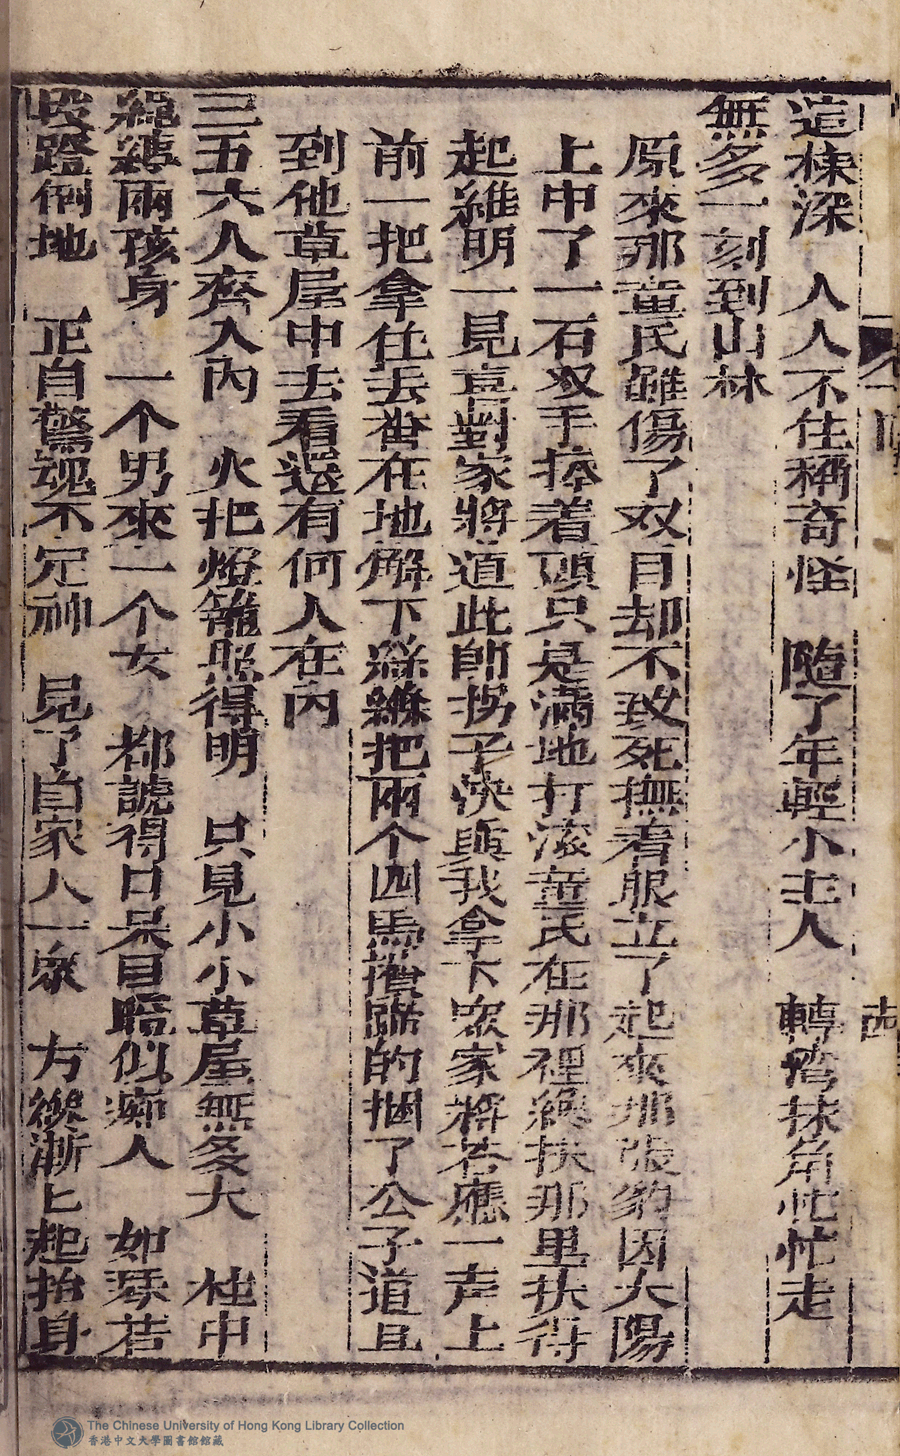 這樣深　人人不住稱奇怪　隨了年輕小主人　轉灣抹角忙忙走
無多一刻到山林
原來那童氏雖傷了双目却不致死撫着眼立了起來那張豹因太陽
上中了一石双手捧着頭只是滿地打滚童氏在那裡纔扶那里扶得
起維明一見喜對家將道此即拐子快與我拿下衆家將荅應一声上
前一把拿住丢番在地觧下絲縧把兩个四馬攢蹄的捆了公子道且
到他草屋中去看還有何人在內
三五六人齊入內　火把燈籠照得明　只見小小草屋無多大　柱中
繩縛兩孩身　一个男來一个女　都諕得口呆目瞪似痴人　如琴若
叚蹬倒地　正自驚魂不定神　見了自家人一衆　方纔漸上起抬身
The Chinese University of Hong Kong Library Collection
香港中文大學圖書館館藏